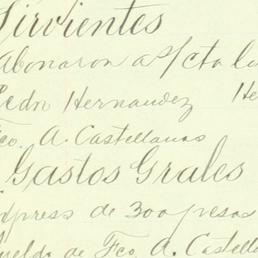 Sirvientes
Abonaron a s/cta
Pedn Hernandez He
Fco. A. Castellanos
Gastos Grales
Express de 300 pesos
Sueldo de Fco. A. Castell